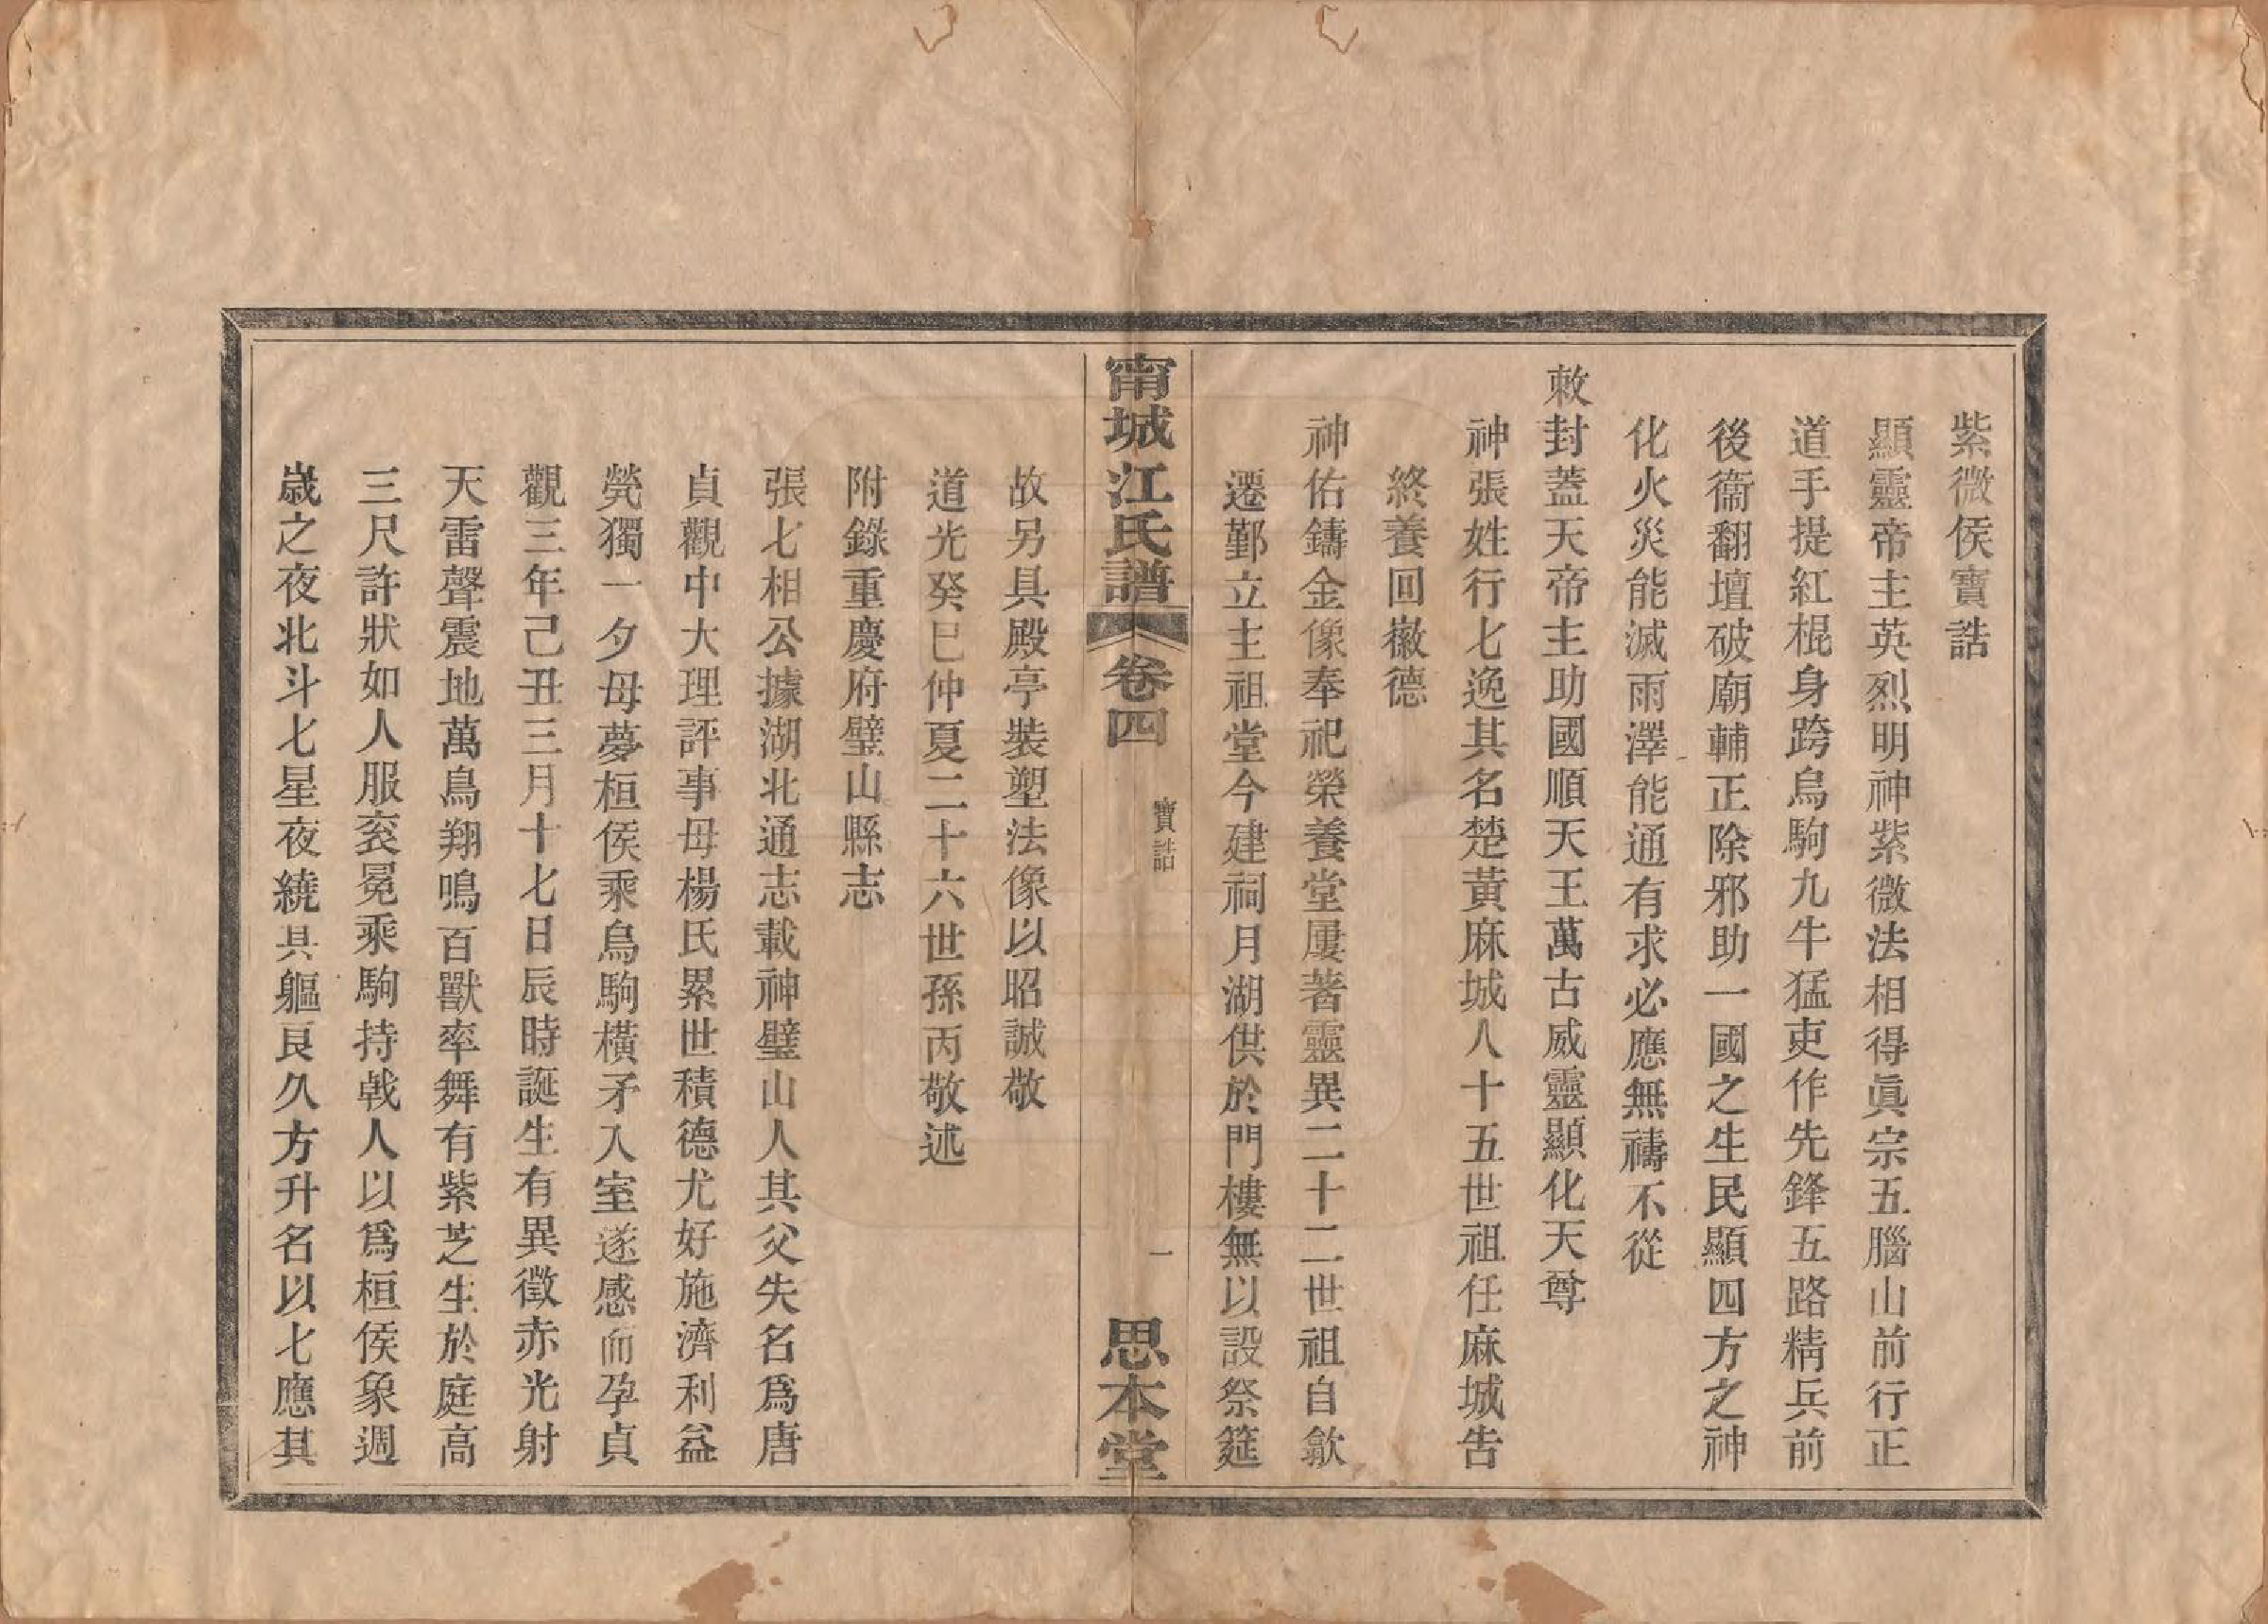 紫微侯寶誥
顯靈帝主英烈明神紫微法相得眞宗五腦山前行正
道手提紅棍身跨烏駒九牛猛吏作先鋒五路精兵前
後衞翻壇破廟輔正除邪助一國之生民顯四方之神
化火災能滅雨澤能通有求必應無禱不從
敕封蓋天帝主助國順天王萬古威靈顯化天尊
神張姓行七逸其名楚黃麻城人十五世祖任麻城告
終養回徽德
神佑鑄金像奉祀榮養堂屢著靈異二十二世祖自歙
遷鄞立主祖堂今建祠月湖供於門樓無以設祭筵
甯城江氏譜 卷四 寶誥 一 思本堂
故另具殿亭裝塑法像以昭誠敬
道光癸巳仲夏二十六世孫丙敬述
附錄重慶府璧山縣志
張七相公據湖北通志載神璧山人其父失名爲唐
貞觀中大理評事母楊氏累世積德尤好施濟利益
煢獨一夕母夢桓侯乘烏駒橫矛入室遂感而孕貞
觀三年己丑三月十七日辰時誕生有異徵赤光射
天雷聲震地萬鳥翔鳴百獸率舞有紫芝生於庭高
三尺許狀如人服衮冕乘駒持戟人以爲桓侯象週
歲之夜北斗七星夜繞具軀良久方升名以七應其